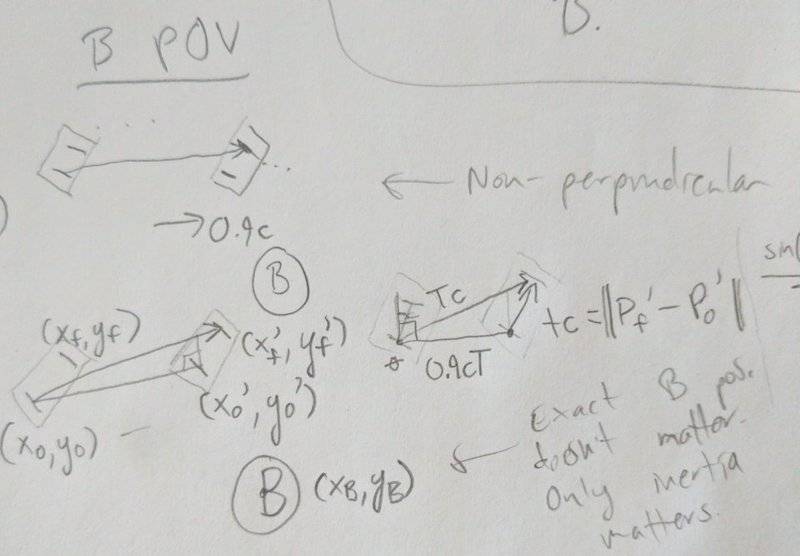 B POV
B.
← Non-perpendicular
→ 0.9c
B
(xf, yf)
(xf', yf')
(x0', y0')
(x0, y0)
Tc
0.9cT
tc = ||Pf' - P0'||
sin(
Exact B pos.
doesn't matter.
Only inertia
matters.
B (xB, yB)